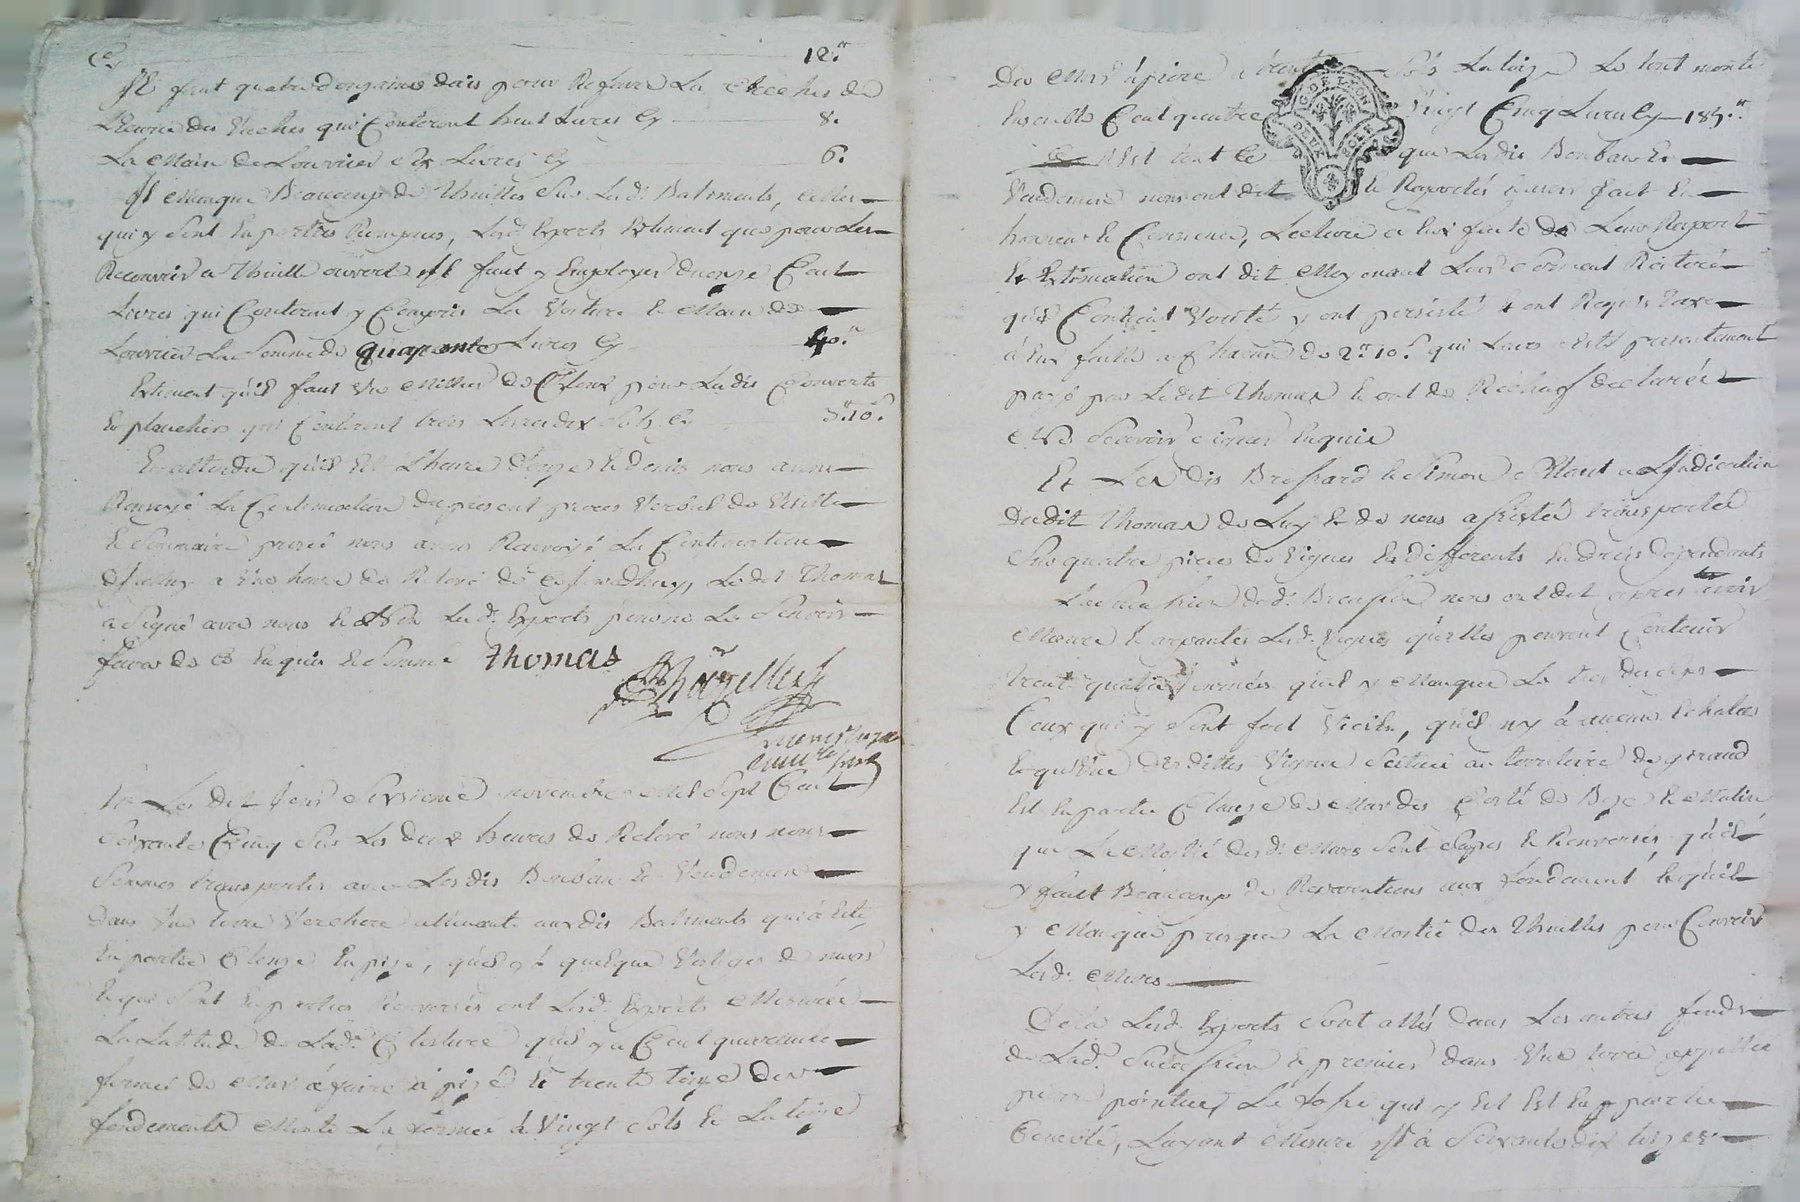 Cy 12.
Il faut quatre douzaines dais pour Refaire La Creches de
L'Ecurie des Vaches qui Couteront huit Livres Cy 8.
La Main de Louvrier six Livres Cy 6.
Il Manque Beaucoup de Thuilles sur Lesd. Batiments, celles
qui y sont En parties Rompues, Lesd. Experts Estiment que pour Les
Recouvrir a Thuille ouvert Il faut y Employer Cent
Livres qui Couteront y Compris La Voiture et Main de
Louvrier La Somme de quarante Livres Cy 40.
Estiment qu'il faut Un Millier de Cloux pour Lesdis Couverts
Et planchers qui Couteront trois Livres dix Sols Cy 3. 10.
Et attendu qu'il Est L'heure d'onze Et demis nous avons
Renvoyé La Continuation du present proces Verbal de Visitte
Et Sommaire prisée nous avons Renvoyé La Continuation
a Une heure de Relevé de Ce jourdhuy, Ledit Thomas
a Signé avec nous Et Non Lesd. Experts pour ne Le Scavoir
faire de Ce Enquis Et Sommé Thomas
Et Ledit Jour Seizieme novembre Mil Sept Cent
Soixante Cinq Sur Les deux heures de Relevé nous nous
Sommes transportés avec Lesdis Bonbau Et Vendeman
Dans Une terre Verchere attenante auxdis Batiments qui a Eté
En partie Clause En pizé, quil y a quelque Vestiges de murs
Et qui sont En parties Renversés ont Lesd. Experts Mesurée
La Latitude de Lad. Clasture quil y a Cent quarante
formes de Mur a faire a pizé Et trente toize de
fondements Monte La forme à Vingt Sols Et La toize
Des Murs a trente Sols La toize Le tout monte
Ensemble Cent quatre Vingt Cinq Livres Cy 185.
C'Est tout Ce que Lesdis Bonbau Et
Vendeman nous ont dit Et Rapportés avoir fait En
honneur Et Conscience, Lecture a Eux faite de Leur Raport
Et Estimation ont dit Moyenant Leur Serment Reiterée
quil Contient Verité y ont persisté Et ont Requis taxe
à Eux faitte a Chacun de 2. 10. qui Leurs a Eté presentement
payé par Ledit Thomas Et ont de Rechef declarée
Ne Scavoir Signer Enquis
Et Lesdis Brossard Et Simon Mout a L'Indication
Dudit Thomas de Luy Et de nous assistés transportés
Sur quatre pieces de Vignes En differents Endrois dependants
de La Succession dud. nous ont dit apres avoir
Mesuré Et arpentés Lesd. Vignes quelles peuvent Contenir
trente quatre Journées quil y Manque Le tier des Seps
Ceux qui y sont fort Vieils, quil ny à aucuns Echalas
Et qu'Une desdittes Vignes Scituée au territoire de girand
Est En partie Clause de Murs des Cotté de Bize Et Matin
que La Moitié desd. Murs sont Et Renversés qu'il
y faut Beaucoup de Reparations aux fondement Et quil
y Manque presque La Moitié des Thuilles pour Couvrir
Lesd. Murs
De la Lesd. Experts Sont allés dans Les autres fonds
de Lad. Succession Et premier dans Une terre appellée
pierre pointue, Le fossé qui y Est Est En partie
Comblé, Layant Mesuré Il a Soixante dix toizes